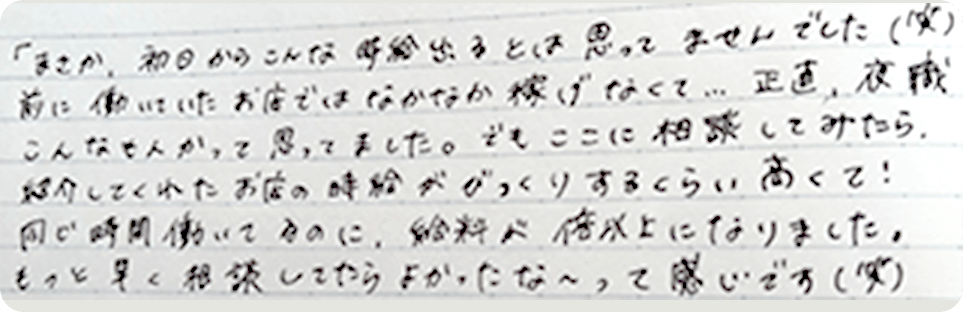 「まさか、初日からこんな時給出るとは思ってませんでした(笑)
前に働いていたお店ではなかなか稼げなくて… 正直、夜職
こんなもんかって思ってました。でもここに相談してみたら、
紹介してくれたお店の時給がびっくりするくらい高くて!
同じ時間働いてるのに、給料が倍以上になりました。
もっと早く相談してたらよかったな〜って感じです(笑)